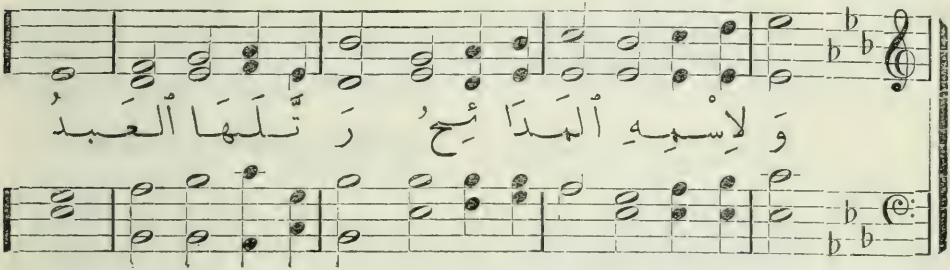 وَ لِاسْمِهِ ٱلمَدَا ئِحُ رَ تَّلَهَا ٱلعَبدُ